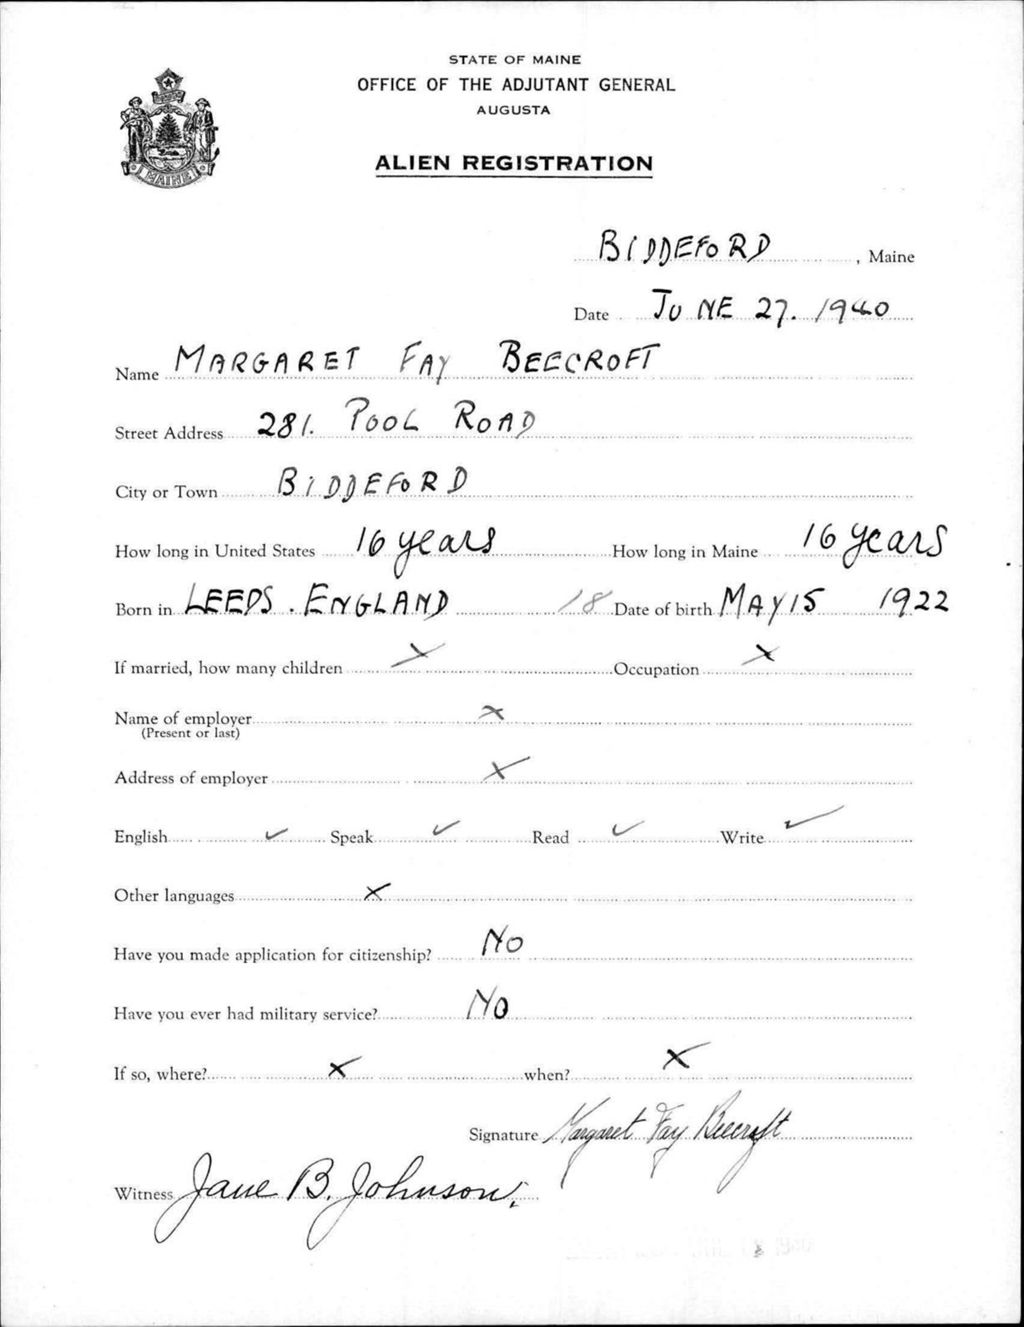 STATE OF MAINE
OFFICE OF THE ADJUTANT GENERAL
AUGUSTA
ALIEN REGISTRATION
MAINE
BIDDEFORD, Maine
Date JUNE 27. 1940
Name MARGARET FAY BEECROFT
Street Address 281. POOL ROAD
City or Town BIDDEFORD
How long in United States 16 years How long in Maine 16 years
Born in LEEDS. ENGLAND 18 Date of birth MAY 15 1922
If married, how many children X Occupation X
Name of employer X
(Present or last)
Address of employer X
English ✓ Speak ✓ Read ✓ Write ✓
Other languages X
Have you made application for citizenship? NO
Have you ever had military service? NO
If so, where? X when? X
Signature Margaret Fay Beecroft
Witness Jane B. Johnson.